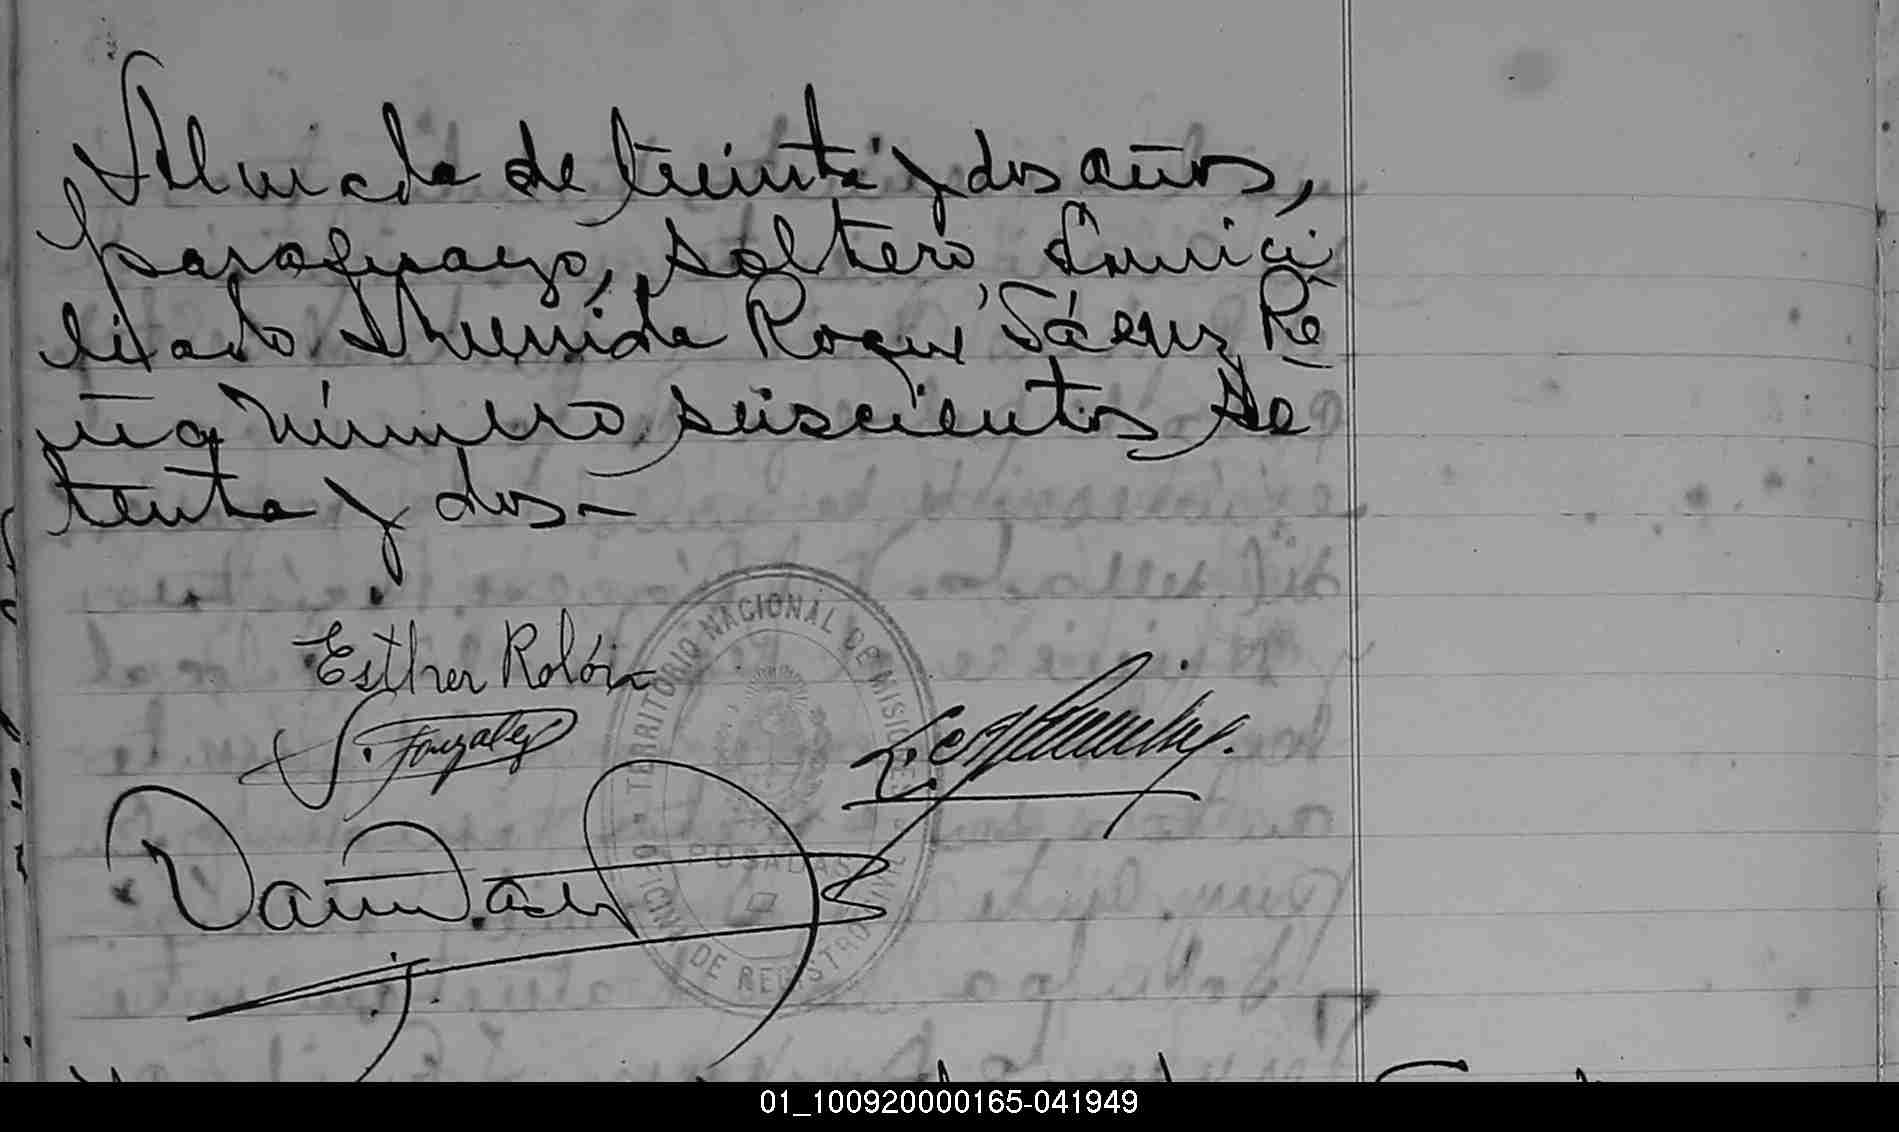 Almada de treinta y dos años,
paraguayo, soltero, domici
liado Avenida Roque Sáenz Pe
ña número seiscientos se
tenta y dos-
Esther Rolón
J. Gonzalez
TERRITORIO NACIONAL DE MISIONES
POSADAS
OFICINA DE REGISTRO CIVIL
01_100920000165-041949